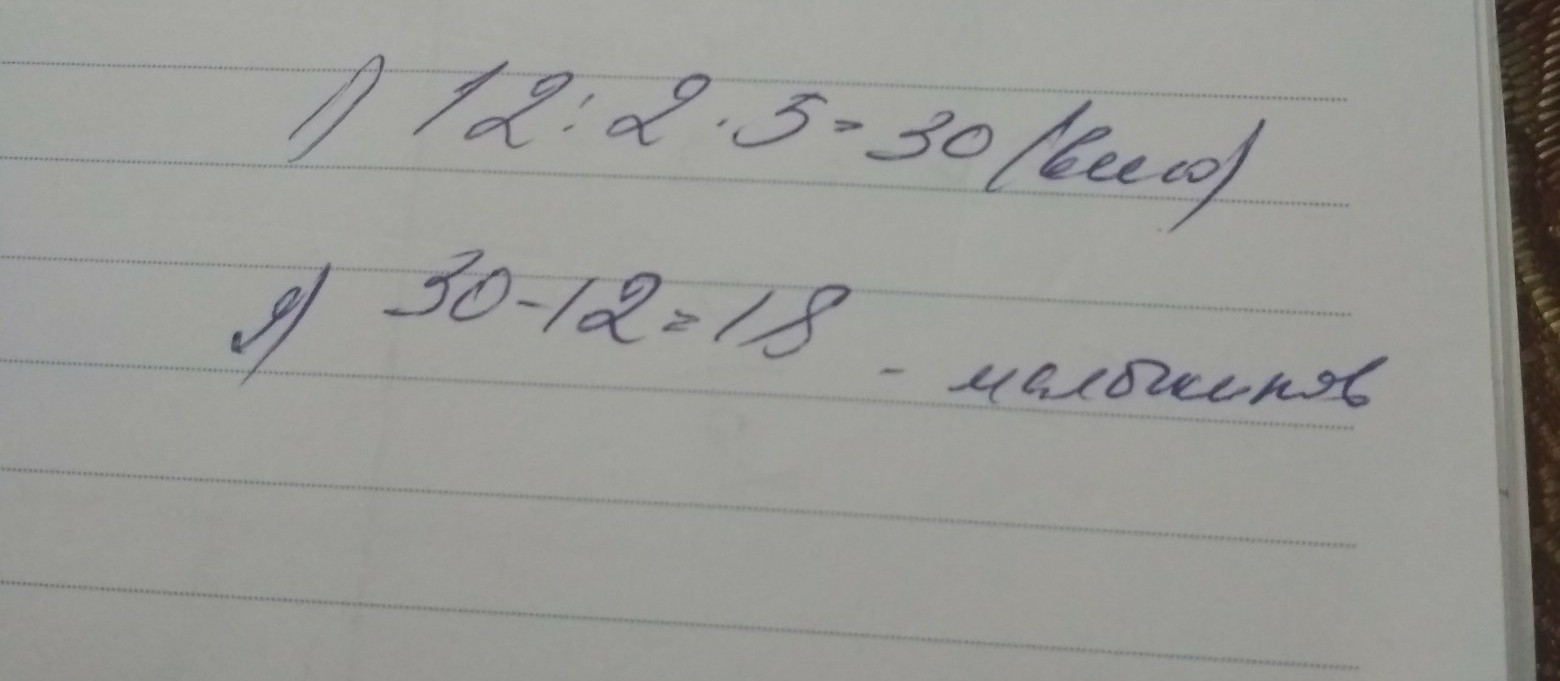 1) 12:2·5=30 (всего)
2) 30-12=18 - мальчиков